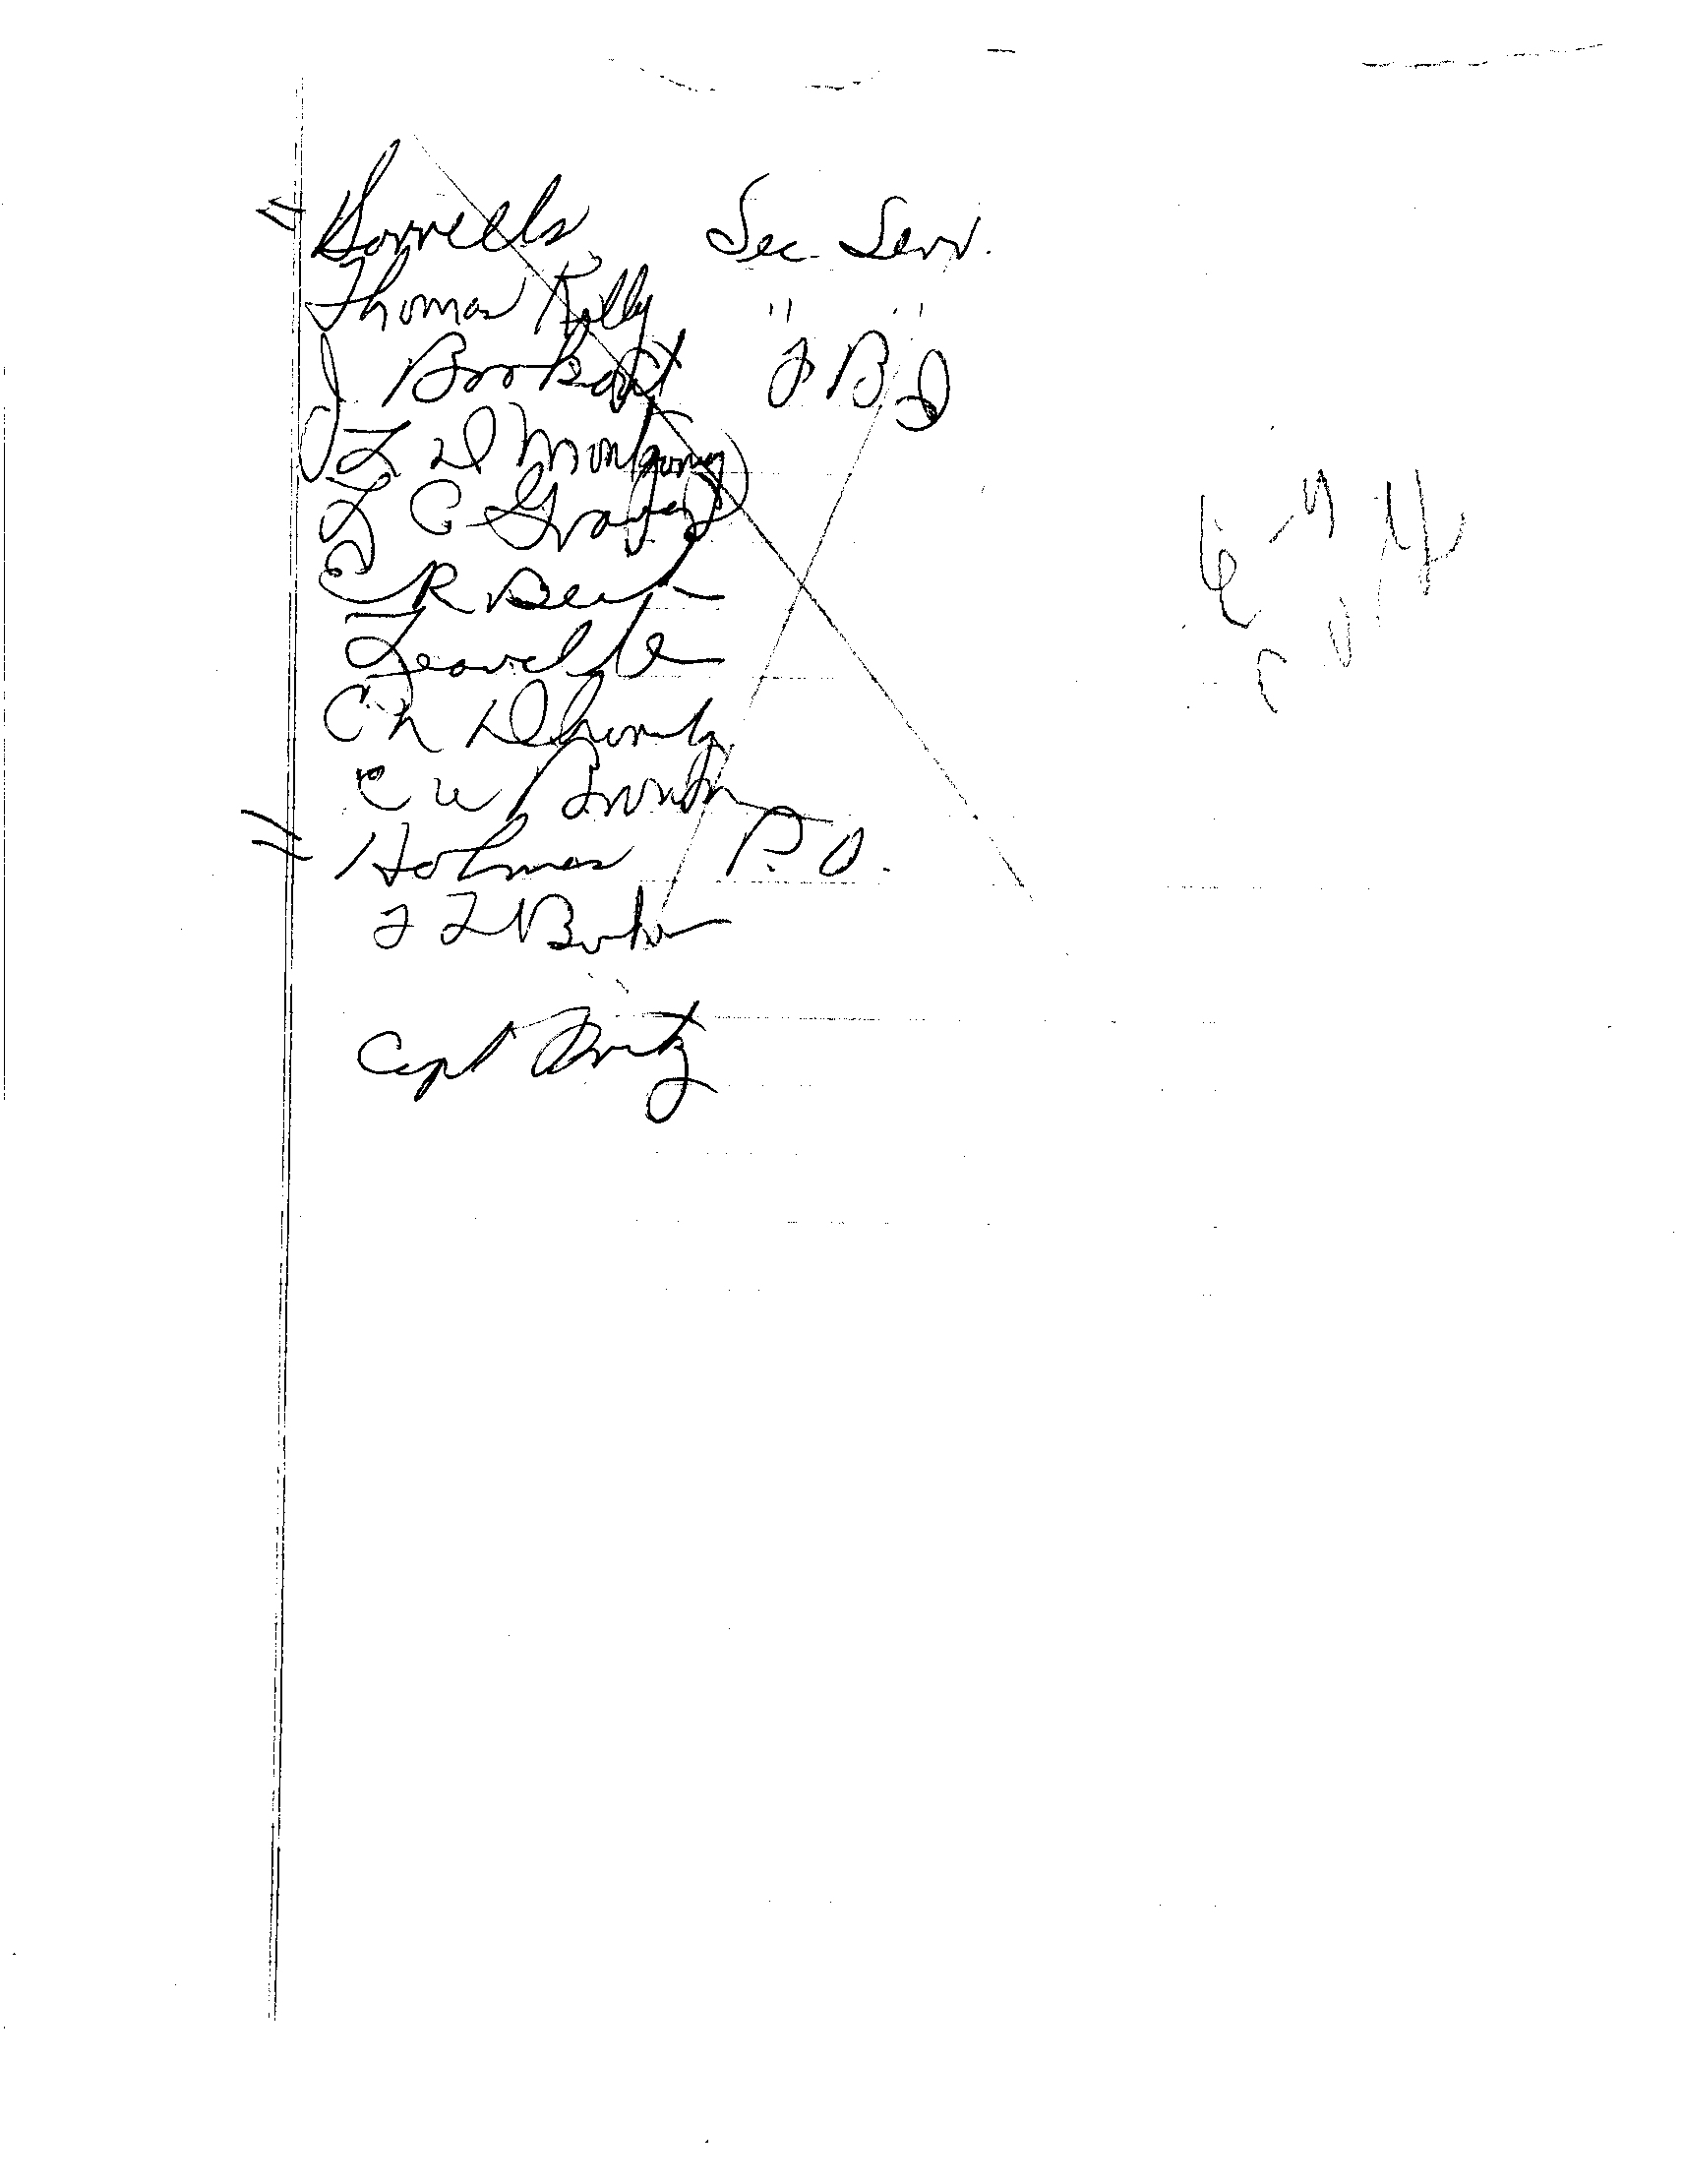 Sorrells Sec. Serv.
Thomas Kelly " "
J Bookout F B I
L D Montgomery
L C Graves
C R Beck
Leavelle
C N Dhority
C W Brown
Holmes P. O.
Capt Fritz